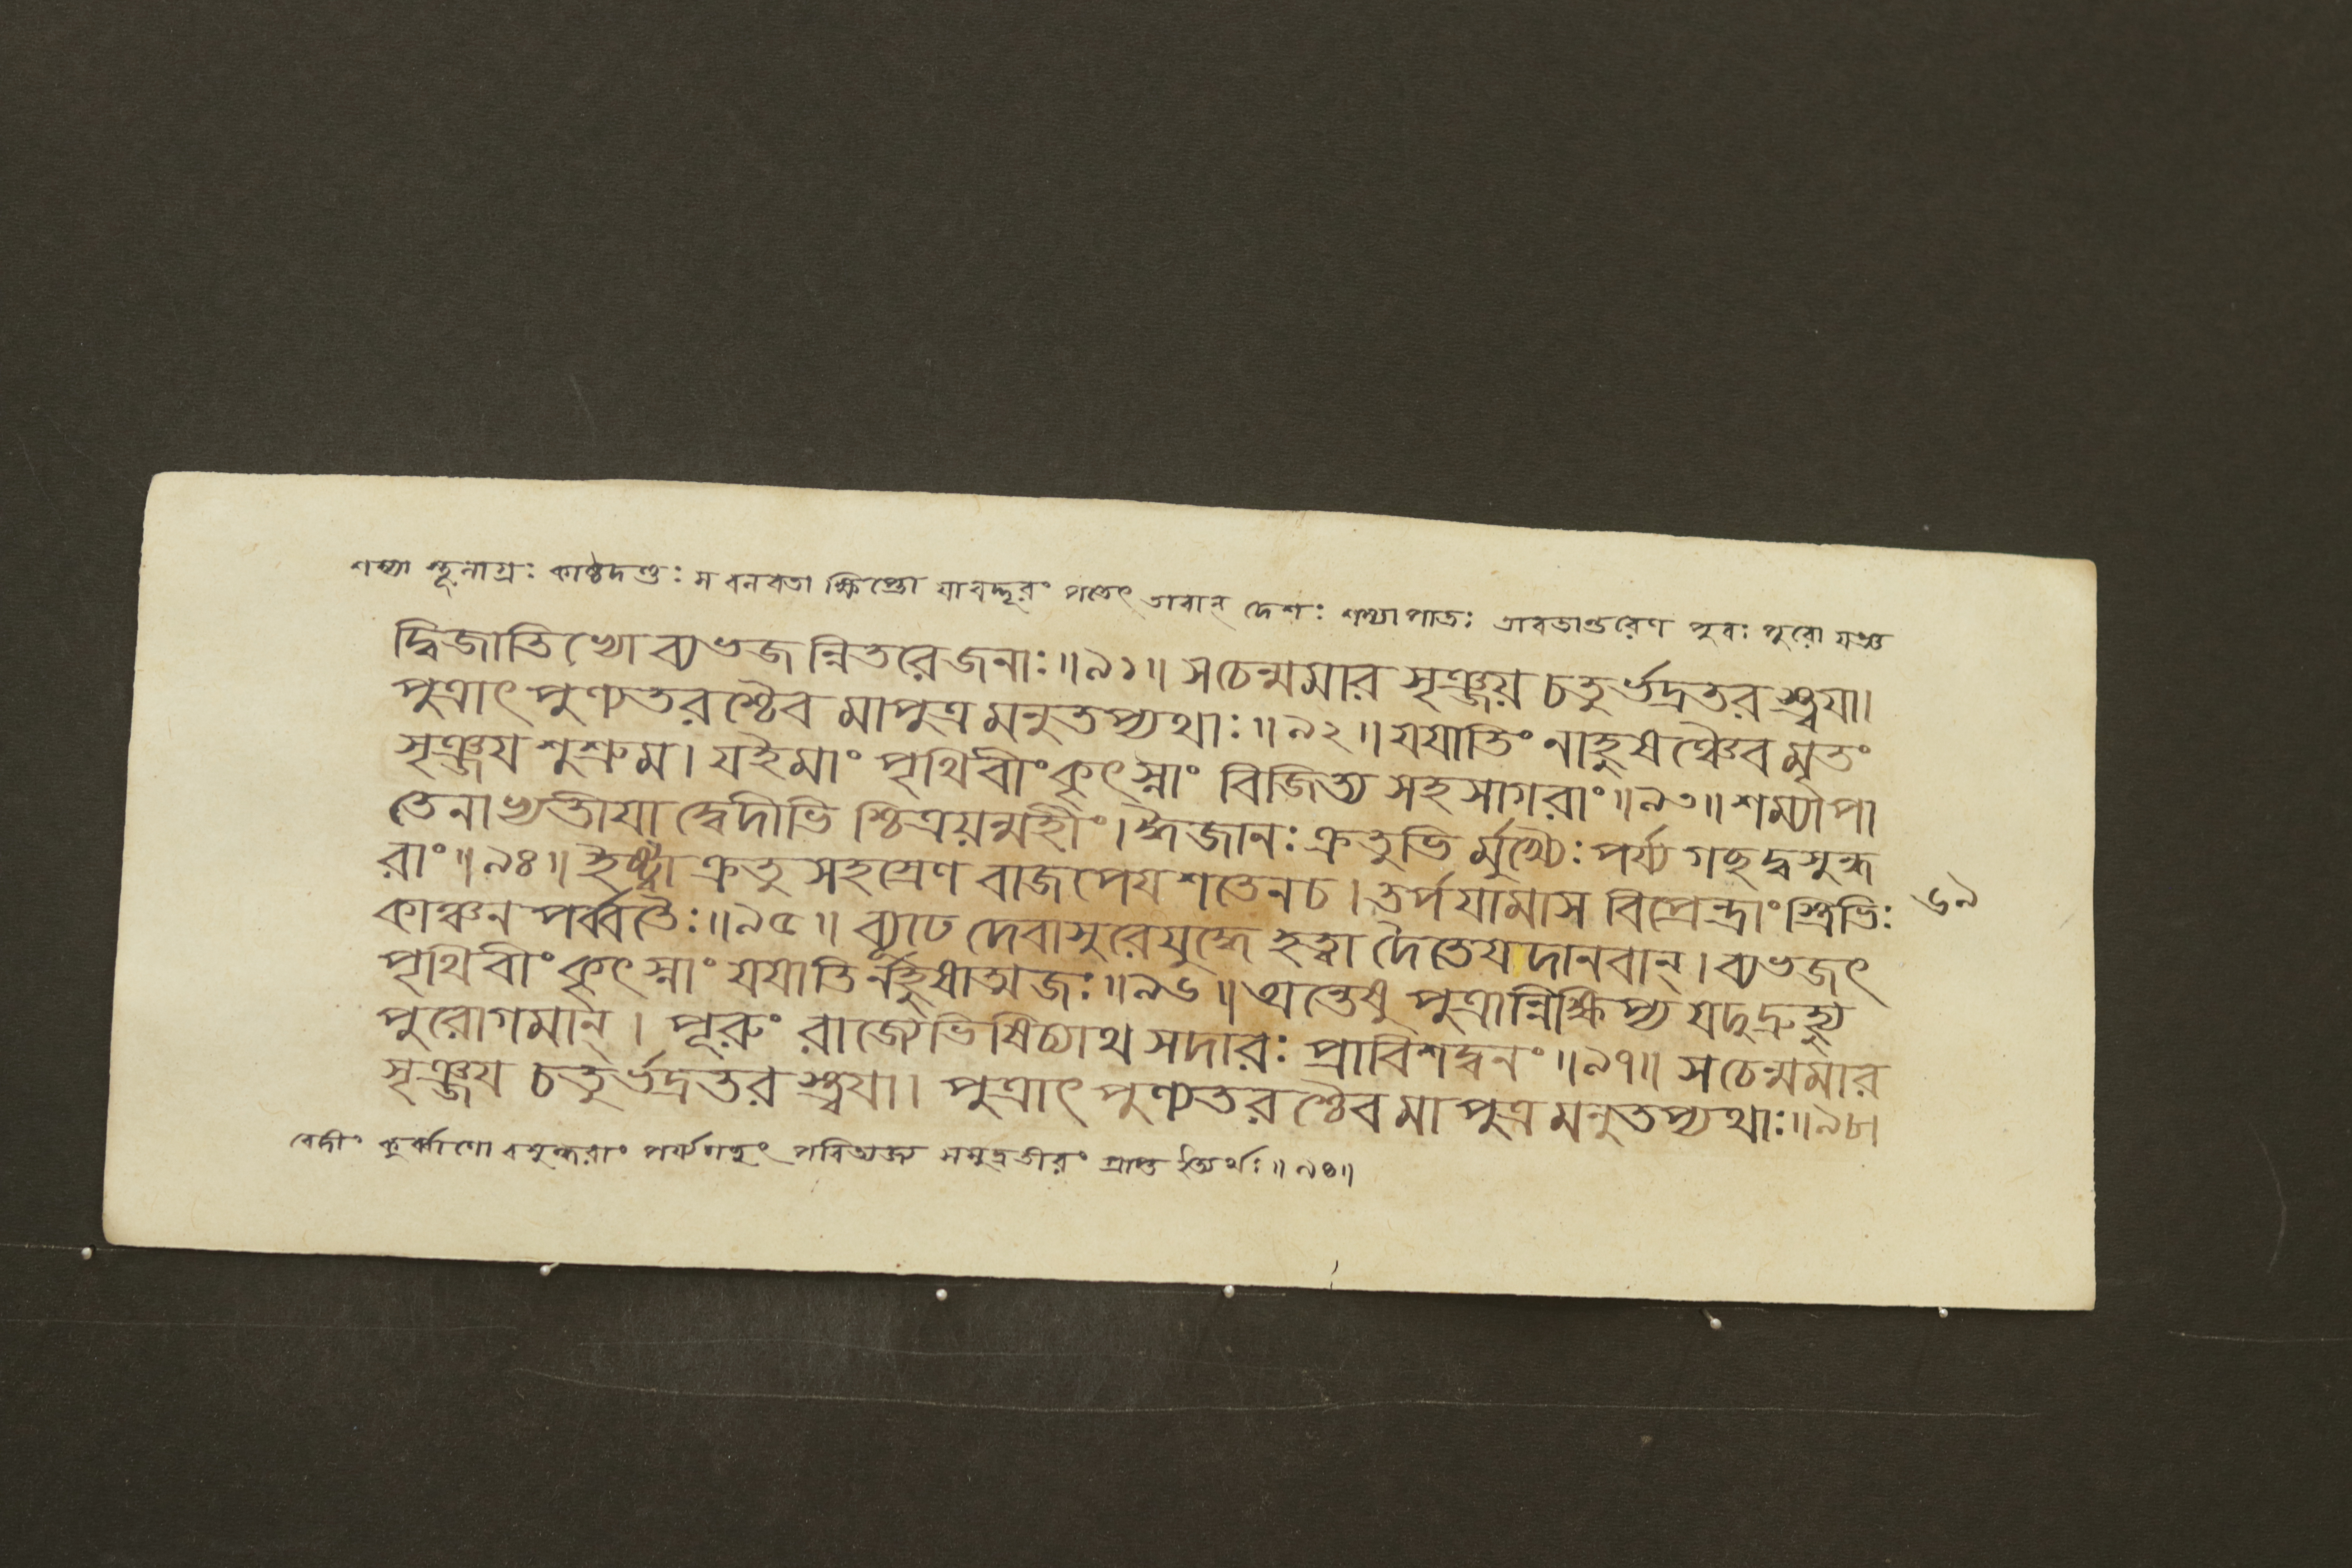 শম্যা স্থূলাগ্রঃ কাষ্ঠদণ্ডঃ স বলবতা ক্ষিপ্তো যাবদ্দূরং পতেৎ তাবান্ দেশঃ শম্যাপাতঃ তাবতান্তরেণ পুরঃ পুরো যজ্ঞ
দ্বিজাতিভ্যো ব্যভজন্নিতরেজনাঃ॥৯১॥ সচেন্মমার সৃঞ্জয় চতুর্ভদ্রতরস্ত্বযা।
পুত্রাৎ পুণ্যতরশ্চৈব মাপুত্রমনুতপ্যথাঃ॥৯২॥ যযাতিং নাহুষঞ্চৈব মৃতং
সৃঞ্জয শুশ্রুম। যইমাং পৃথিবীং কৃৎস্নাং বিজিত্য সহসাগরাং॥৯৩॥ শম্যাপা
তেনাভ্যতীযাদ্বেদীভিশ্চিত্রয়ন্মহীং। ঈজানঃ ক্রতুভির্মুখ্যৈঃ পর্য্যগছদ্বসুন্ধ
রাং॥৯৪॥ ইষ্ট্বা ক্রতুসহস্রেণ বাজপেযশতেনচ। তর্পযামাস বিপ্রেন্দ্রাংস্ত্রিভিঃ
৬৯
কাঞ্চনপর্ব্বতৈঃ॥৯৫॥ ব্যূঢে দেবাসুরেযুদ্ধে হত্বা দৈতেযদানবান্। ব্যভজৎ
পৃথিবীং কৃৎস্নাং যযাতির্নহুষাত্মজঃ॥৯৬॥ অন্তেষু পুত্রান্নিক্ষিপ্য যদুদ্রুহ্যু
পুরোগমান্। পূরুং রাজ্যেভিষিচ্যাথ সদারঃ প্রাবিশদ্বনং॥৯৭॥ সচেন্মমার
সৃঞ্জয চতুর্ভদ্রতরস্ত্বযা। পুত্রাৎ পুণ্যতরশ্চৈব মাপুত্রমনুতপ্যথাঃ॥৯৮।
বেদীং কুর্ব্বাণো বসুন্ধরাং পর্য্যগছৎ পরিত্যজ্য সমুদ্রতীরং প্রাপ্ত ইত্যর্থঃ॥৯৪॥